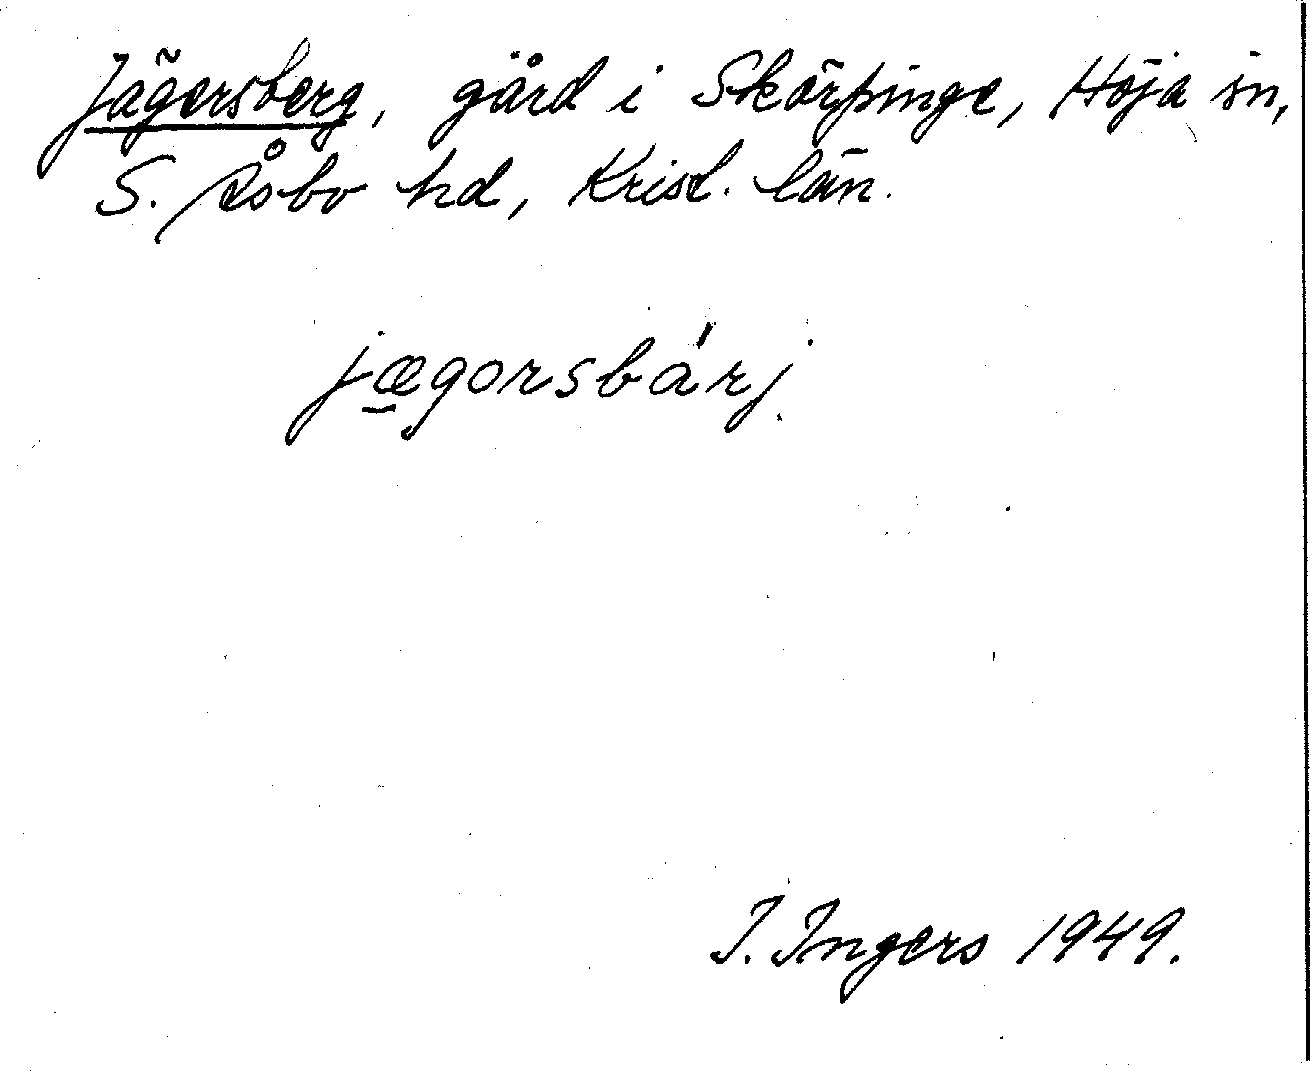 Jägersberg, gård i Skörpinge, Höja sn,
S. Åsbo hd, Krist. län.
jægorsbárj
I. Ingers 1949.